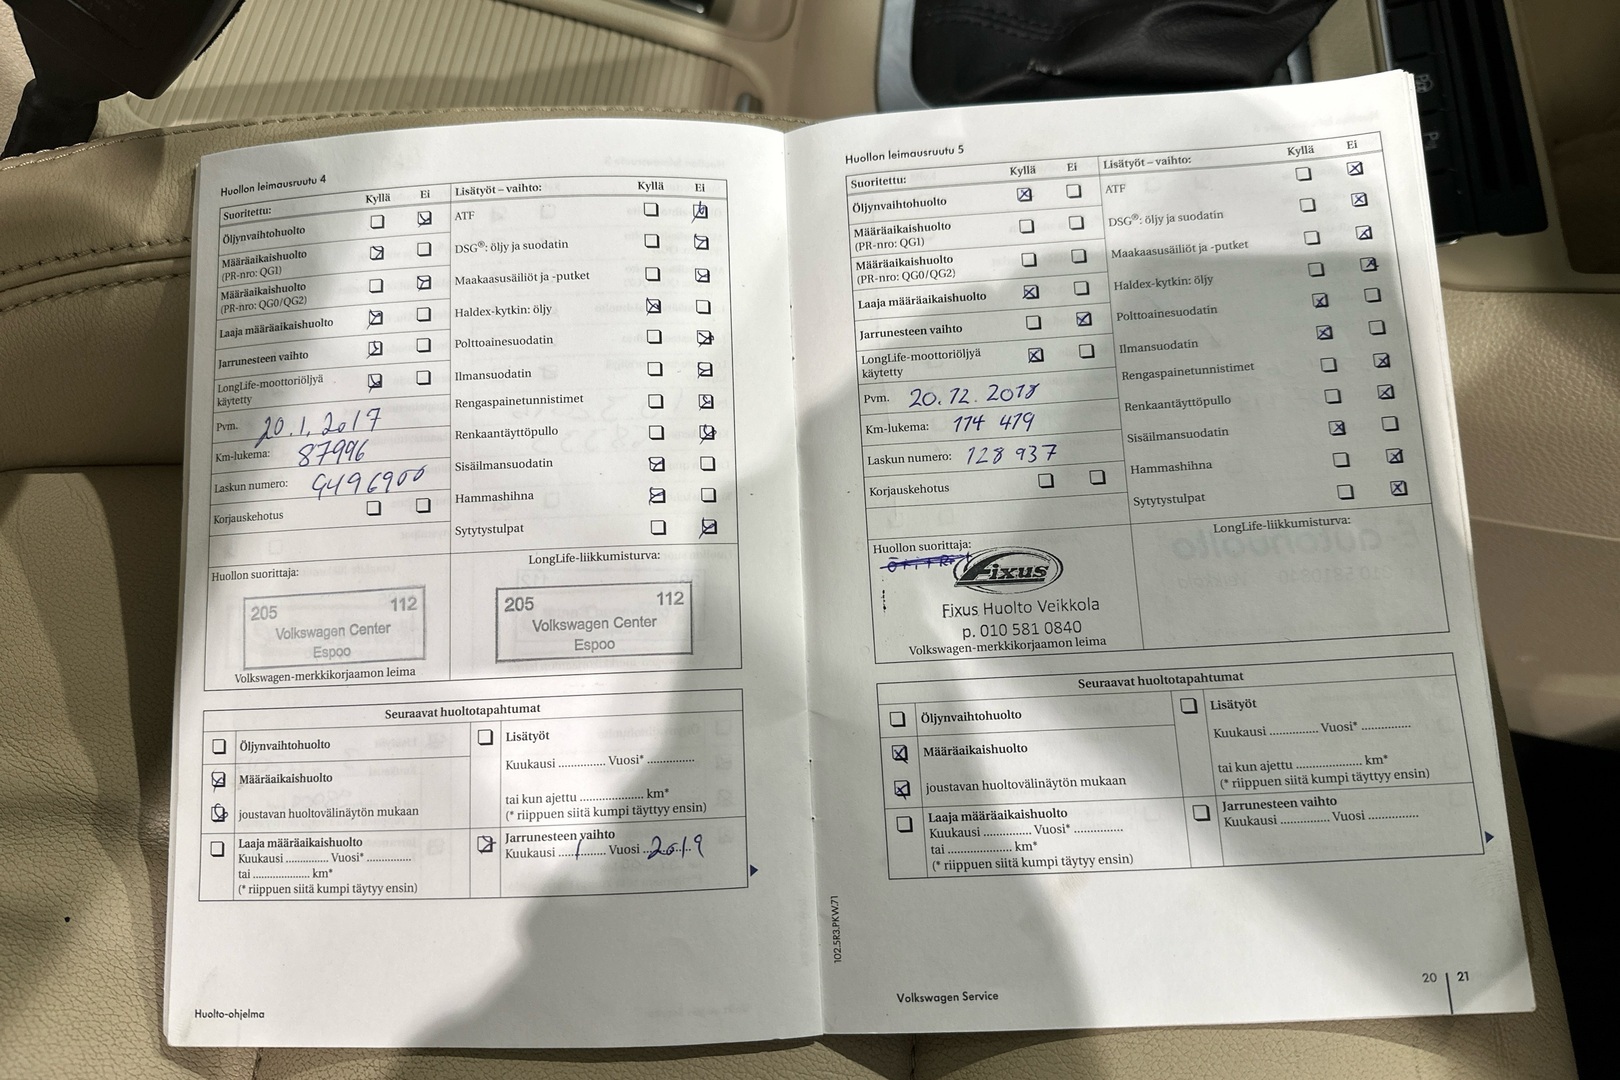 Huollon leimausruutu 4
Suoritettu: Kyllä Ei
Öljynvaihtohuolto
Määräaikaishuolto
(PR-nro: QG1)
Määräaikaishuolto
(PR-nro: QG0/QG2)
Laaja määräaikaishuolto
Jarrunesteen vaihto
LongLife-moottoriöljyä
käytetty
Pvm. 20.1.2017
Km-lukema: 87996
Laskun numero: 9496900
Korjauskehotus
Lisätyöt – vaihto: Kyllä Ei
ATF
DSG®: öljy ja suodatin
Maakaasusäiliöt ja -putket
Haldex-kytkin: öljy
Polttoainesuodatin
Ilmansuodatin
Rengaspainetunnistimet
Renkaantäyttöpullo
Sisäilmansuodatin
Hammashihna
Sytytystulpat
Huollon suorittaja:
205 112
Volkswagen Center
Espoo
Volkswagen-merkkikorjaamon leima
LongLife-liikkumisturva:
205 112
Volkswagen Center
Espoo
Seuraavat huoltotapahtumat
Öljynvaihtohuolto
Määräaikaishuolto
joustavan huoltovälinäytön mukaan
Laaja määräaikaishuolto
Kuukausi .............. Vuosi* ..............
tai .................... km*
(* riippuen siitä kumpi täytyy ensin)
Lisätyöt
Kuukausi .............. Vuosi* ..............
tai kun ajettu .................... km*
(* riippuen siitä kumpi täyttyy ensin)
Jarrunesteen vaihto
Kuukausi ....1........ Vuosi ..2019
Huolto-ohjelma
Huollon leimausruutu 5
Suoritettu: Kyllä Ei
Öljynvaihtohuolto
Määräaikaishuolto
(PR-nro: QG1)
Määräaikaishuolto
(PR-nro: QG0/QG2)
Laaja määräaikaishuolto
Jarrunesteen vaihto
LongLife-moottoriöljyä
käytetty
Pvm. 20.12.2018
Km-lukema: 114 479
Laskun numero: 128 937
Korjauskehotus
Lisätyöt – vaihto: Kyllä Ei
ATF
DSG®: öljy ja suodatin
Maakaasusäiliöt ja -putket
Haldex-kytkin: öljy
Polttoainesuodatin
Ilmansuodatin
Rengaspainetunnistimet
Renkaantäyttöpullo
Sisäilmansuodatin
Hammashihna
Sytytystulpat
Huollon suorittaja:
Fixus
Fixus Huolto Veikkola
p. 010 581 0840
Volkswagen-merkkikorjaamon leima
LongLife-liikkumisturva:
Seuraavat huoltotapahtumat
Öljynvaihtohuolto
Määräaikaishuolto
joustavan huoltovälinäytön mukaan
Laaja määräaikaishuolto
Kuukausi .............. Vuosi* ..............
tai .................... km*
(* riippuen siitä kumpi täytyy ensin)
Lisätyöt
Kuukausi .............. Vuosi* ..............
tai kun ajettu .................... km*
(* riippuen siitä kumpi täyttyy ensin)
Jarrunesteen vaihto
Kuukausi .............. Vuosi ..............
102.5R3.PKW.71
Volkswagen Service
20 | 21